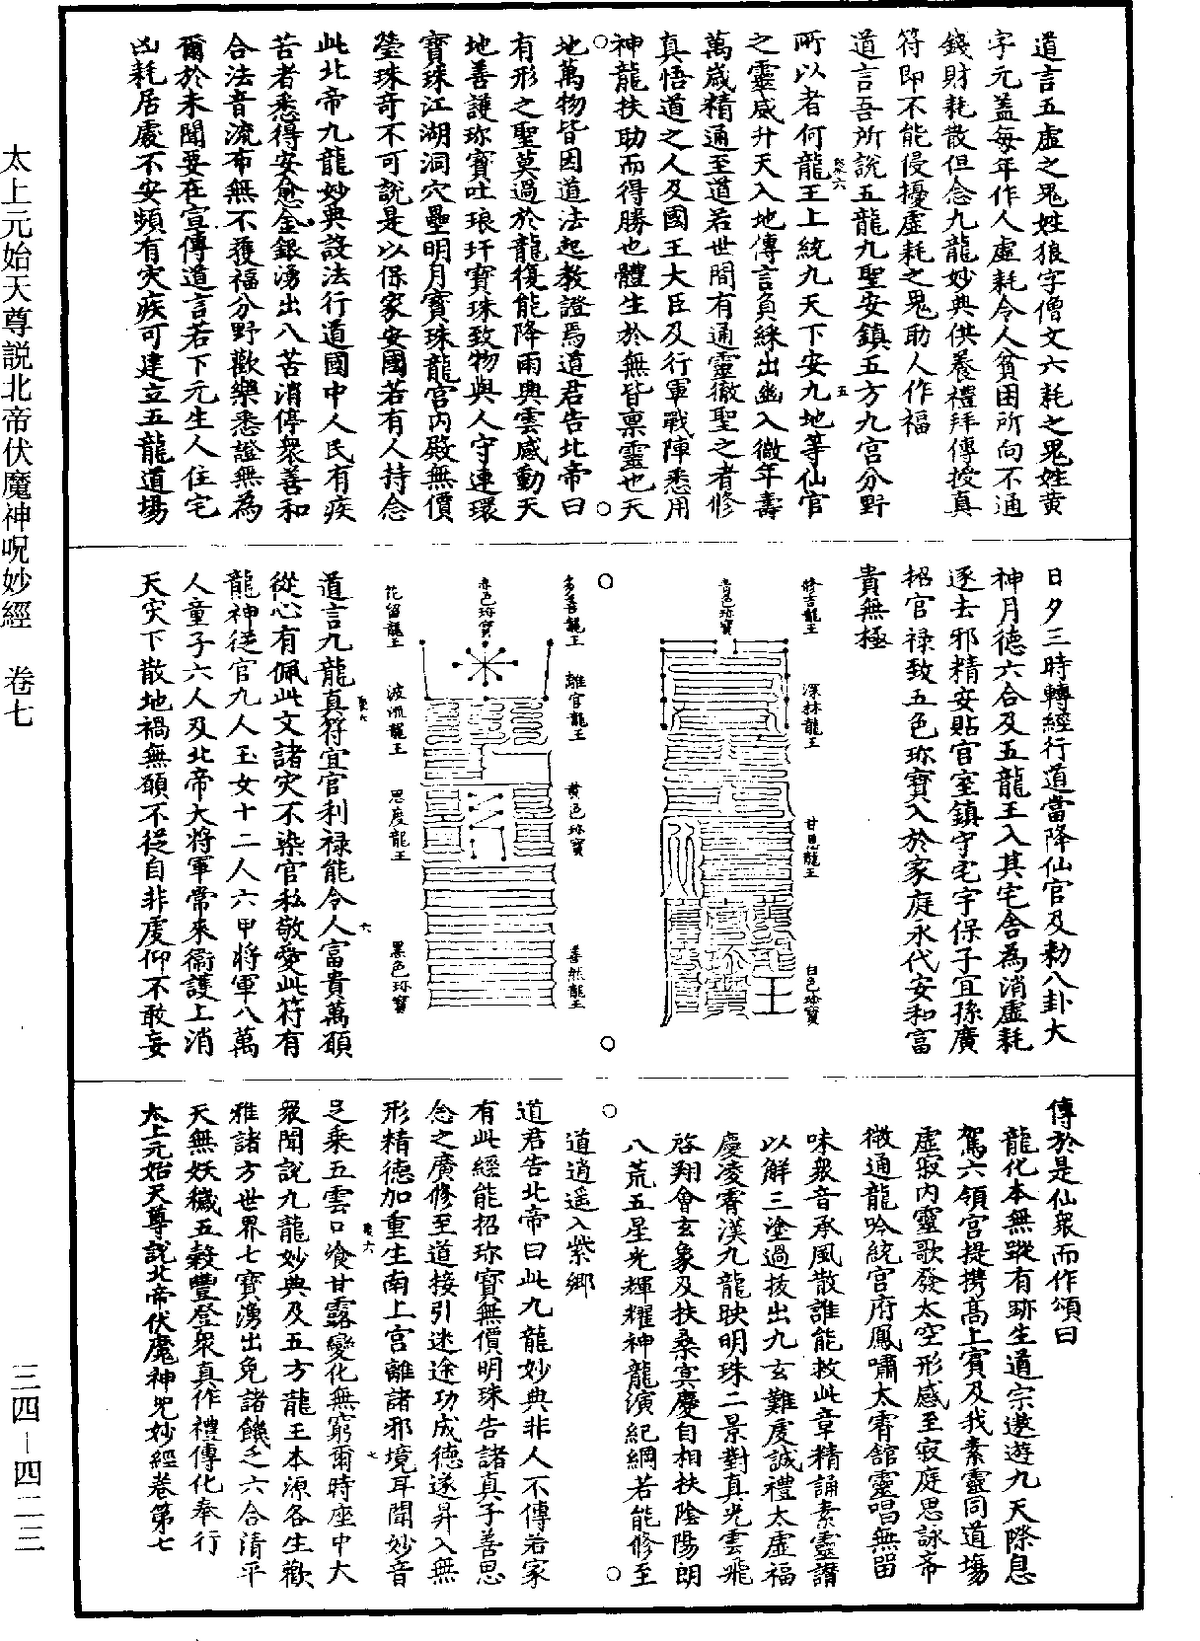 道言五虛之鬼姓狼字僧文六耗之鬼姓黄
字元盖每年作人虛耗令人貧困所向不通
錢財耗散但念九龍妙典供養禮拜傳授真
符即不能侵擾虛耗之鬼助人作福
道言吾所說五龍九聖安鎮五方九宮分野
所以者何龍王上統九天下安九地等仙官
之靈威升天入地傳言負綵出幽入微年壽
萬歲精通至道若世間有通靈徹聖之者修
真悟道之人及國王大臣及行軍戰陣悉用
神龍扶助而得勝也體生於無皆禀靈也天
地萬物皆因道法起教證焉道君告北帝曰
有形之聖莫過於龍復能降雨興雲感動天
地善護珎寳吐琅玕寳珠致物與人守連環
寳珠江湖洞穴壘明月寳珠龍宮内殿無價
瑩珠奇不可說是以保家安國若有人持念
此北帝九龍妙典設法行道國中人民有疾
苦者悉得安愈金銀湧出八苦消停衆善和
合法音流布無不獲福分野歡樂悉證無為
爾於未聞要在宣傳道言若下元生人住宅
凶耗居處不安頻有灾疾可建立五龍道場
日夕三時轉經行道當降仙官及勑八卦大
神月德六合及五龍王入其宅舍為消虛耗
逐去邪精安貼官室鎮守宅宇保子宜孫廣
招官禄致五色珎寳入於家庭永代安和富
貴無極
修吉龍王 深林龍王 甘思龍王 白色珎寳
青色珎寳
多善龍王 離宮龍王 黄色珎寳 善然龍王
赤色珎寳
花留龍王 波流龍王 思度龍王 黑色珎寳
道言九龍真符宜官利禄能令人富貴萬願
從心有佩此文諸灾不染官私敬愛此符有
龍神從官九人玉女十二人六甲將軍八萬
人童子六人及北帝大將軍常来衞護上消
天灾下散地禍無願不從自非虔仰不敢妄
傳於是仙衆而作頌曰
龍化本無蹤有跡生道宗遨遊九天際息
駕六領宮提携高上賓及我素靈同道場
虛寂内靈歌發太空形感至寂庭思詠齋
微通龍吟統宮府鳳嘯太霄舘靈唱無留
味衆音承風散誰能救此章精誦素靈謂
以解三塗過拔出九玄難度誠禮太虛福
慶凌霄漢九龍映明珠二景對真光雲飛
啓翔會玄象及扶桑㝠慶自相扶陰陽朗
八荒五星光輝耀神龍演紀綱若能修至
道逍遥入紫郷
道君告北帝曰此九龍妙典非人不傳若家
有此經能招珎寳無價明珠告諸真子善思
念之廣修至道接引迷途功成德遂昇入無
形精德加重生南上宮離諸邪境耳聞妙音
足乘五雲口飡甘露變化無窮爾時座中大
衆聞說九龍妙典及五方龍王本源各生歡
雅諸方世界七寳湧出免諸饑乏六合清平
天無妖穢五穀豐登衆真作禮傳化奉行
太上元始天尊說北帝伏魔神呪妙經卷第七
太上元始天尊説北帝伏魔神呪妙經 卷七
三四－四二三